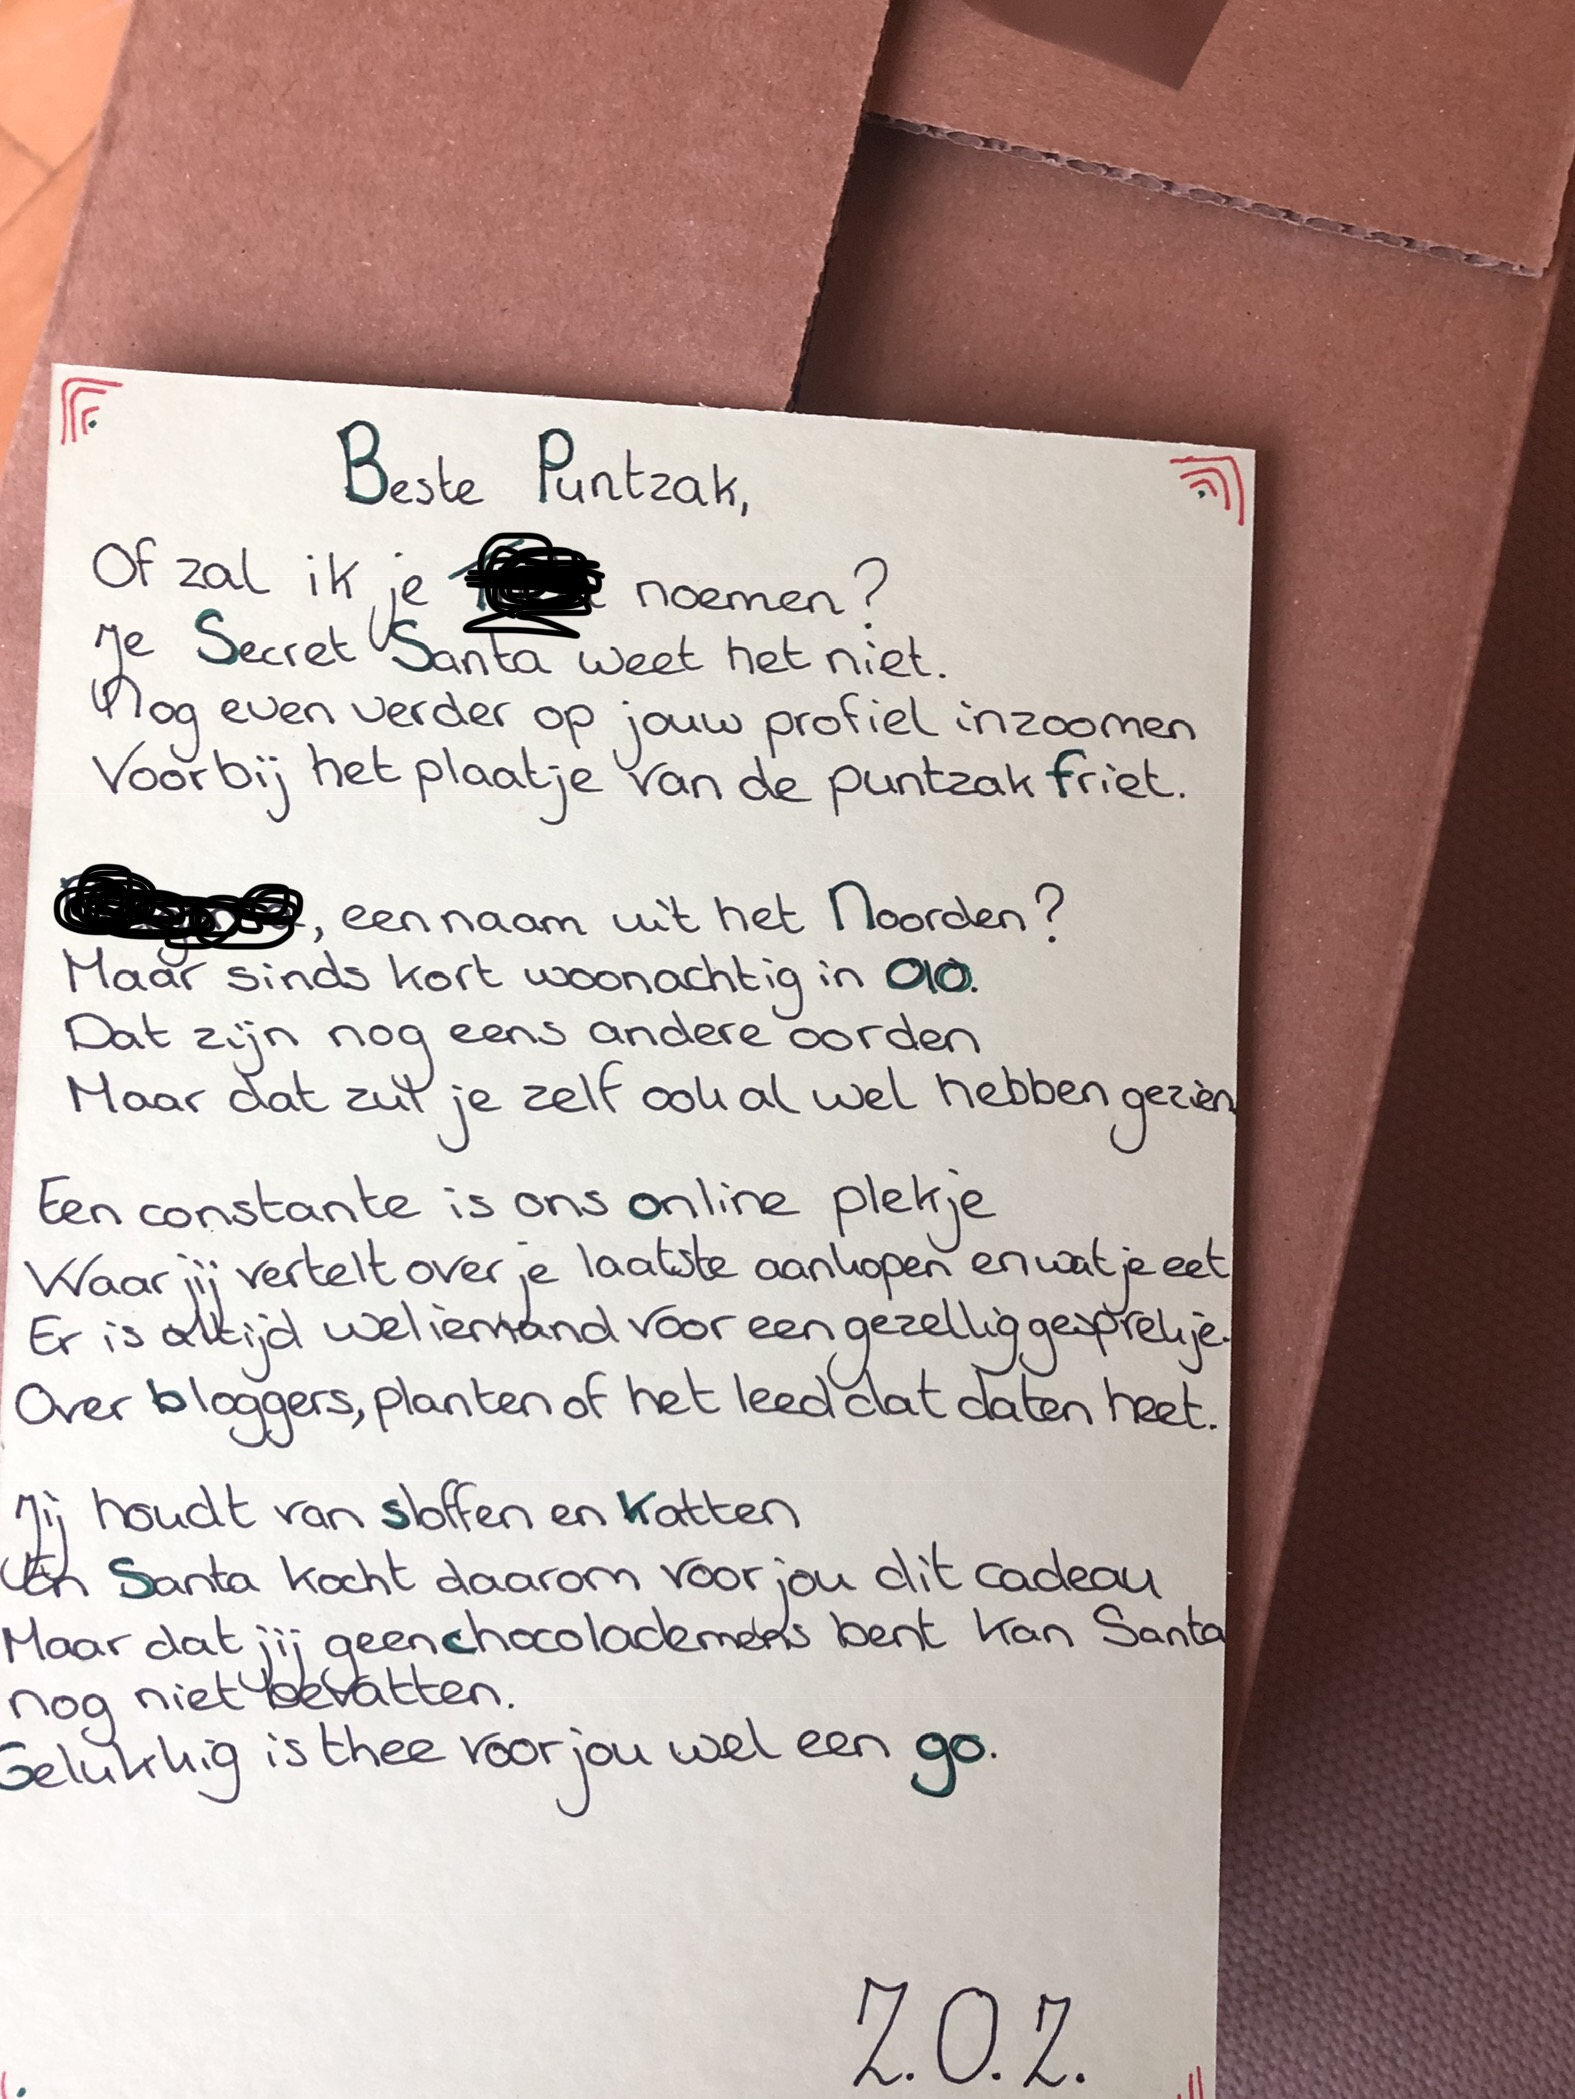 Beste Puntzak,
Of zal ik je noemen?
Je Secret Santa weet het niet.
Nog even verder op jouw profiel inzoomen
Voorbij het plaatje van de puntzak friet.
, een naam uit het Noorden?
Maar sinds kort woonachtig in 010.
Dat zijn nog eens andere oorden
Maar dat zul je zelf ook al wel hebben gezien
Een constante is ons online plekje
Waar jij vertelt over je laatste aankopen en wat je eet
Er is altijd wel iemand voor een gezellig gesprekje.
Over bloggers, planten of het leed dat daten heet.
Jij houdt van sloffen en katten
En Santa kocht daarom voor jou dit cadeau
Maar dat jij geen chocolademens bent kan Santa
nog niet bevatten.
Gelukkig is thee voor jou wel een go.
Z.O.Z.